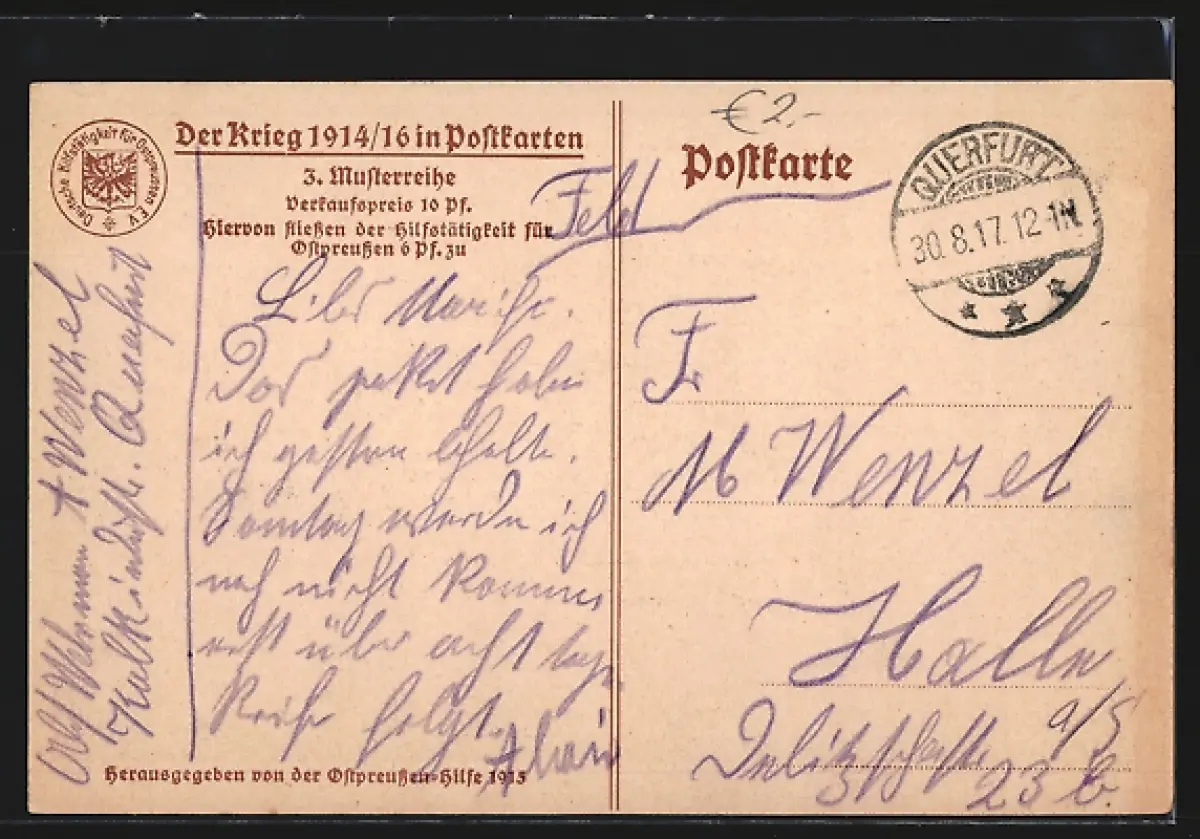 Deutsche Hilfstätigkeit für Ostpreussen E.V.
Der Krieg 1914/16 in Postkarten
3. Musterreihe
Verkaufspreis 10 Pf.
Hiervon fließen der Hilfstätigkeit für
Ostpreußen 6 Pf. zu
Feld
Postkarte
€ 2.-
QUERFURT
30.8.17. 12-1N
Das paket habe
ich gestern
Sontag werde ich
noch nicht komme
erst über acht tage
folgt.
Wenzel
Querfurt
Herausgegeben von der Ostpreußen-Hilfe 1915
Fr
M Wenzel
Halle
a/S
23 b.